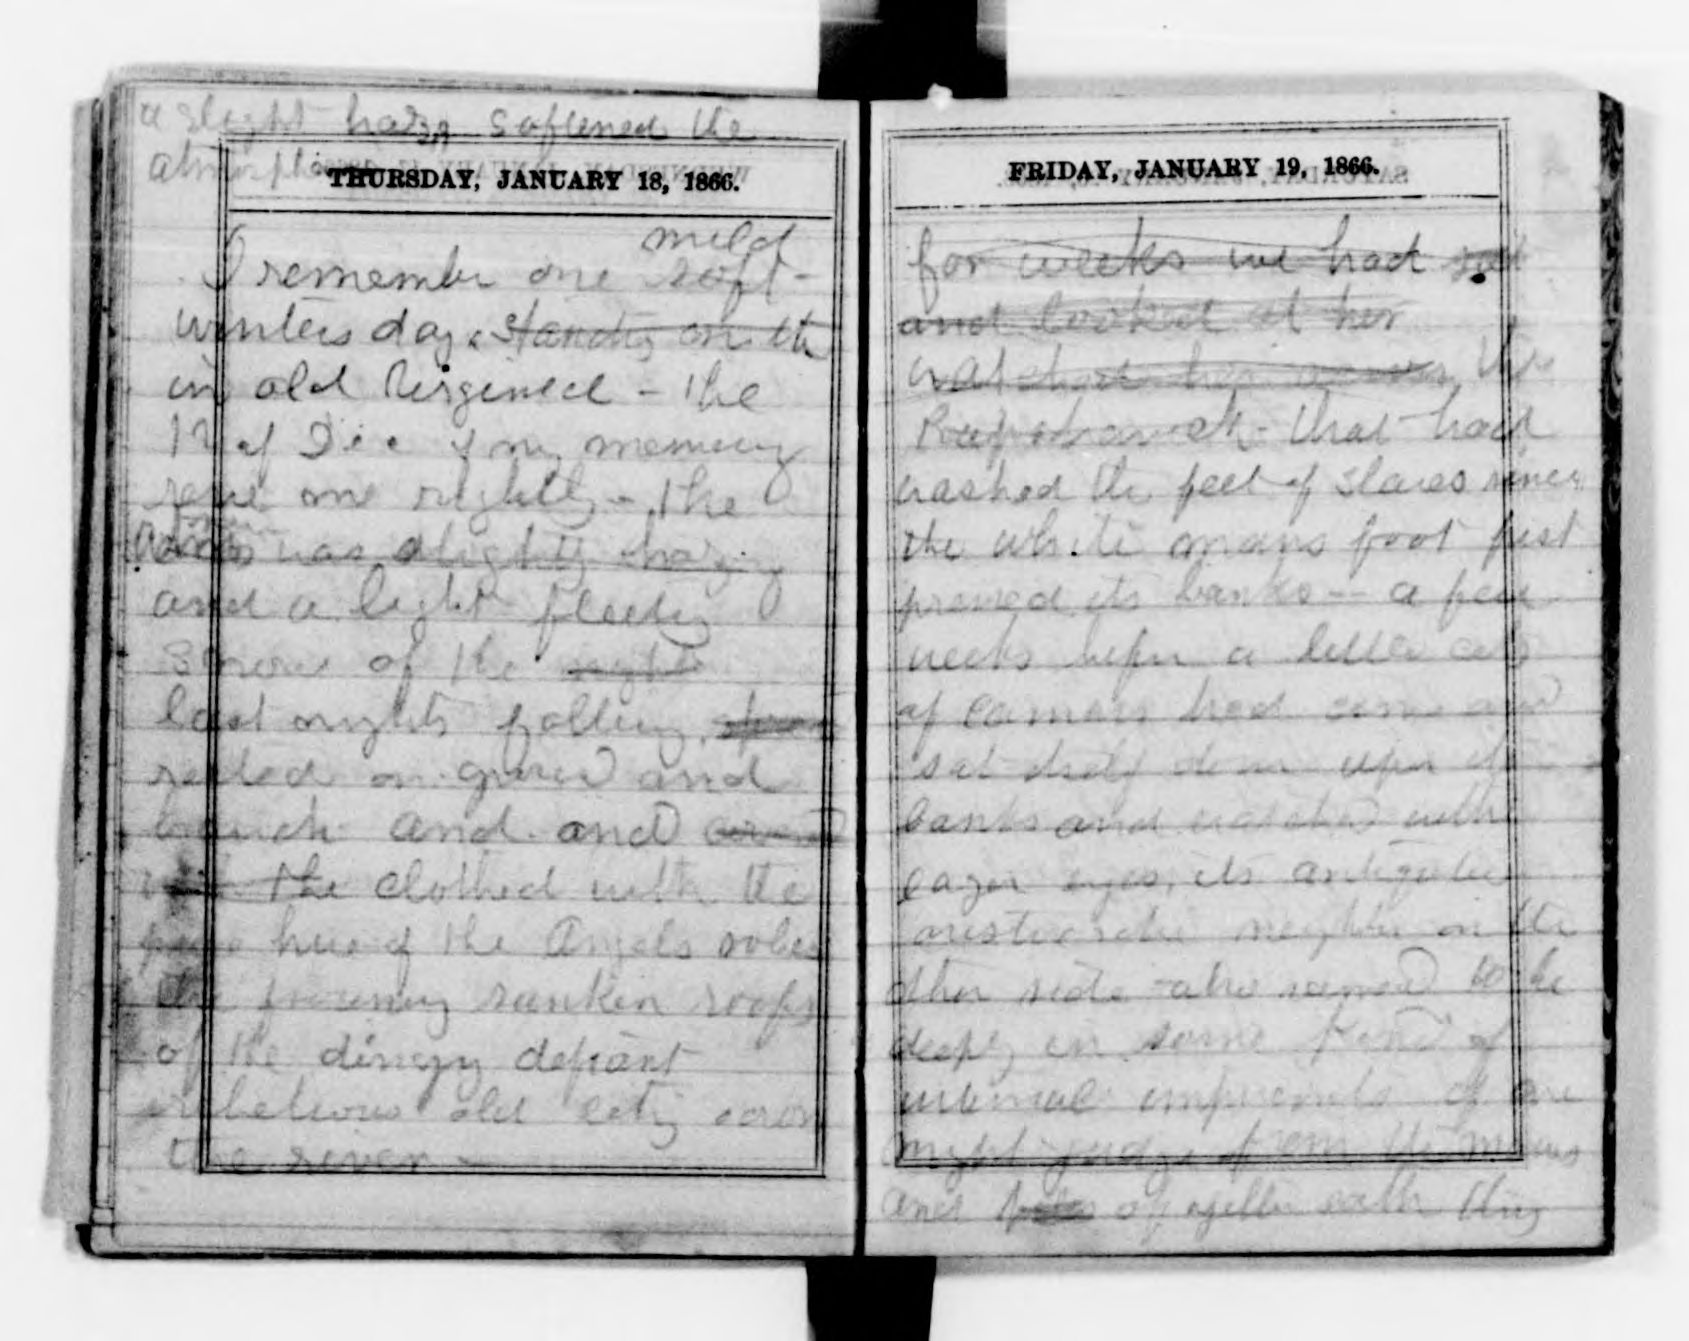 a slight hazy softened the
atmosphere
THURSDAY, JANUARY 18, 1866.
mild
I remember one soft -
winters day, standing on the
in old Virginia - the
12 of Dec if my memory
serve me rightly - the
was slightly hazy
and a light fleecy
snow of the night
last nights falling
rested on ground and
branch and and
the clothed with the
pure hue of the Angels robes
the frowning sunken roofs
of the dingy defiant
rebelious old city across
the river -
FRIDAY, JANUARY 19, 1866.
for weeks we had sat
and looked at her
watched her across the
Rapahannock - that had
washed the feet of slaves since
the white mans foot first
pressed its banks -- a few
weeks before a little city
of canvass had come and
sat down upon its
banks and watched with
eager eyes, its antiquated
aristocratic neighbor on the
other side who seemed to be
deeply in some kind of
internal improvements if one
might judge from the
and of yellow earth they